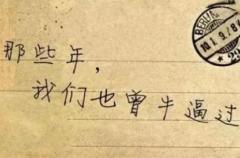 BERLIN
10.1.9.78
那些年，
我们也曾牛逼过